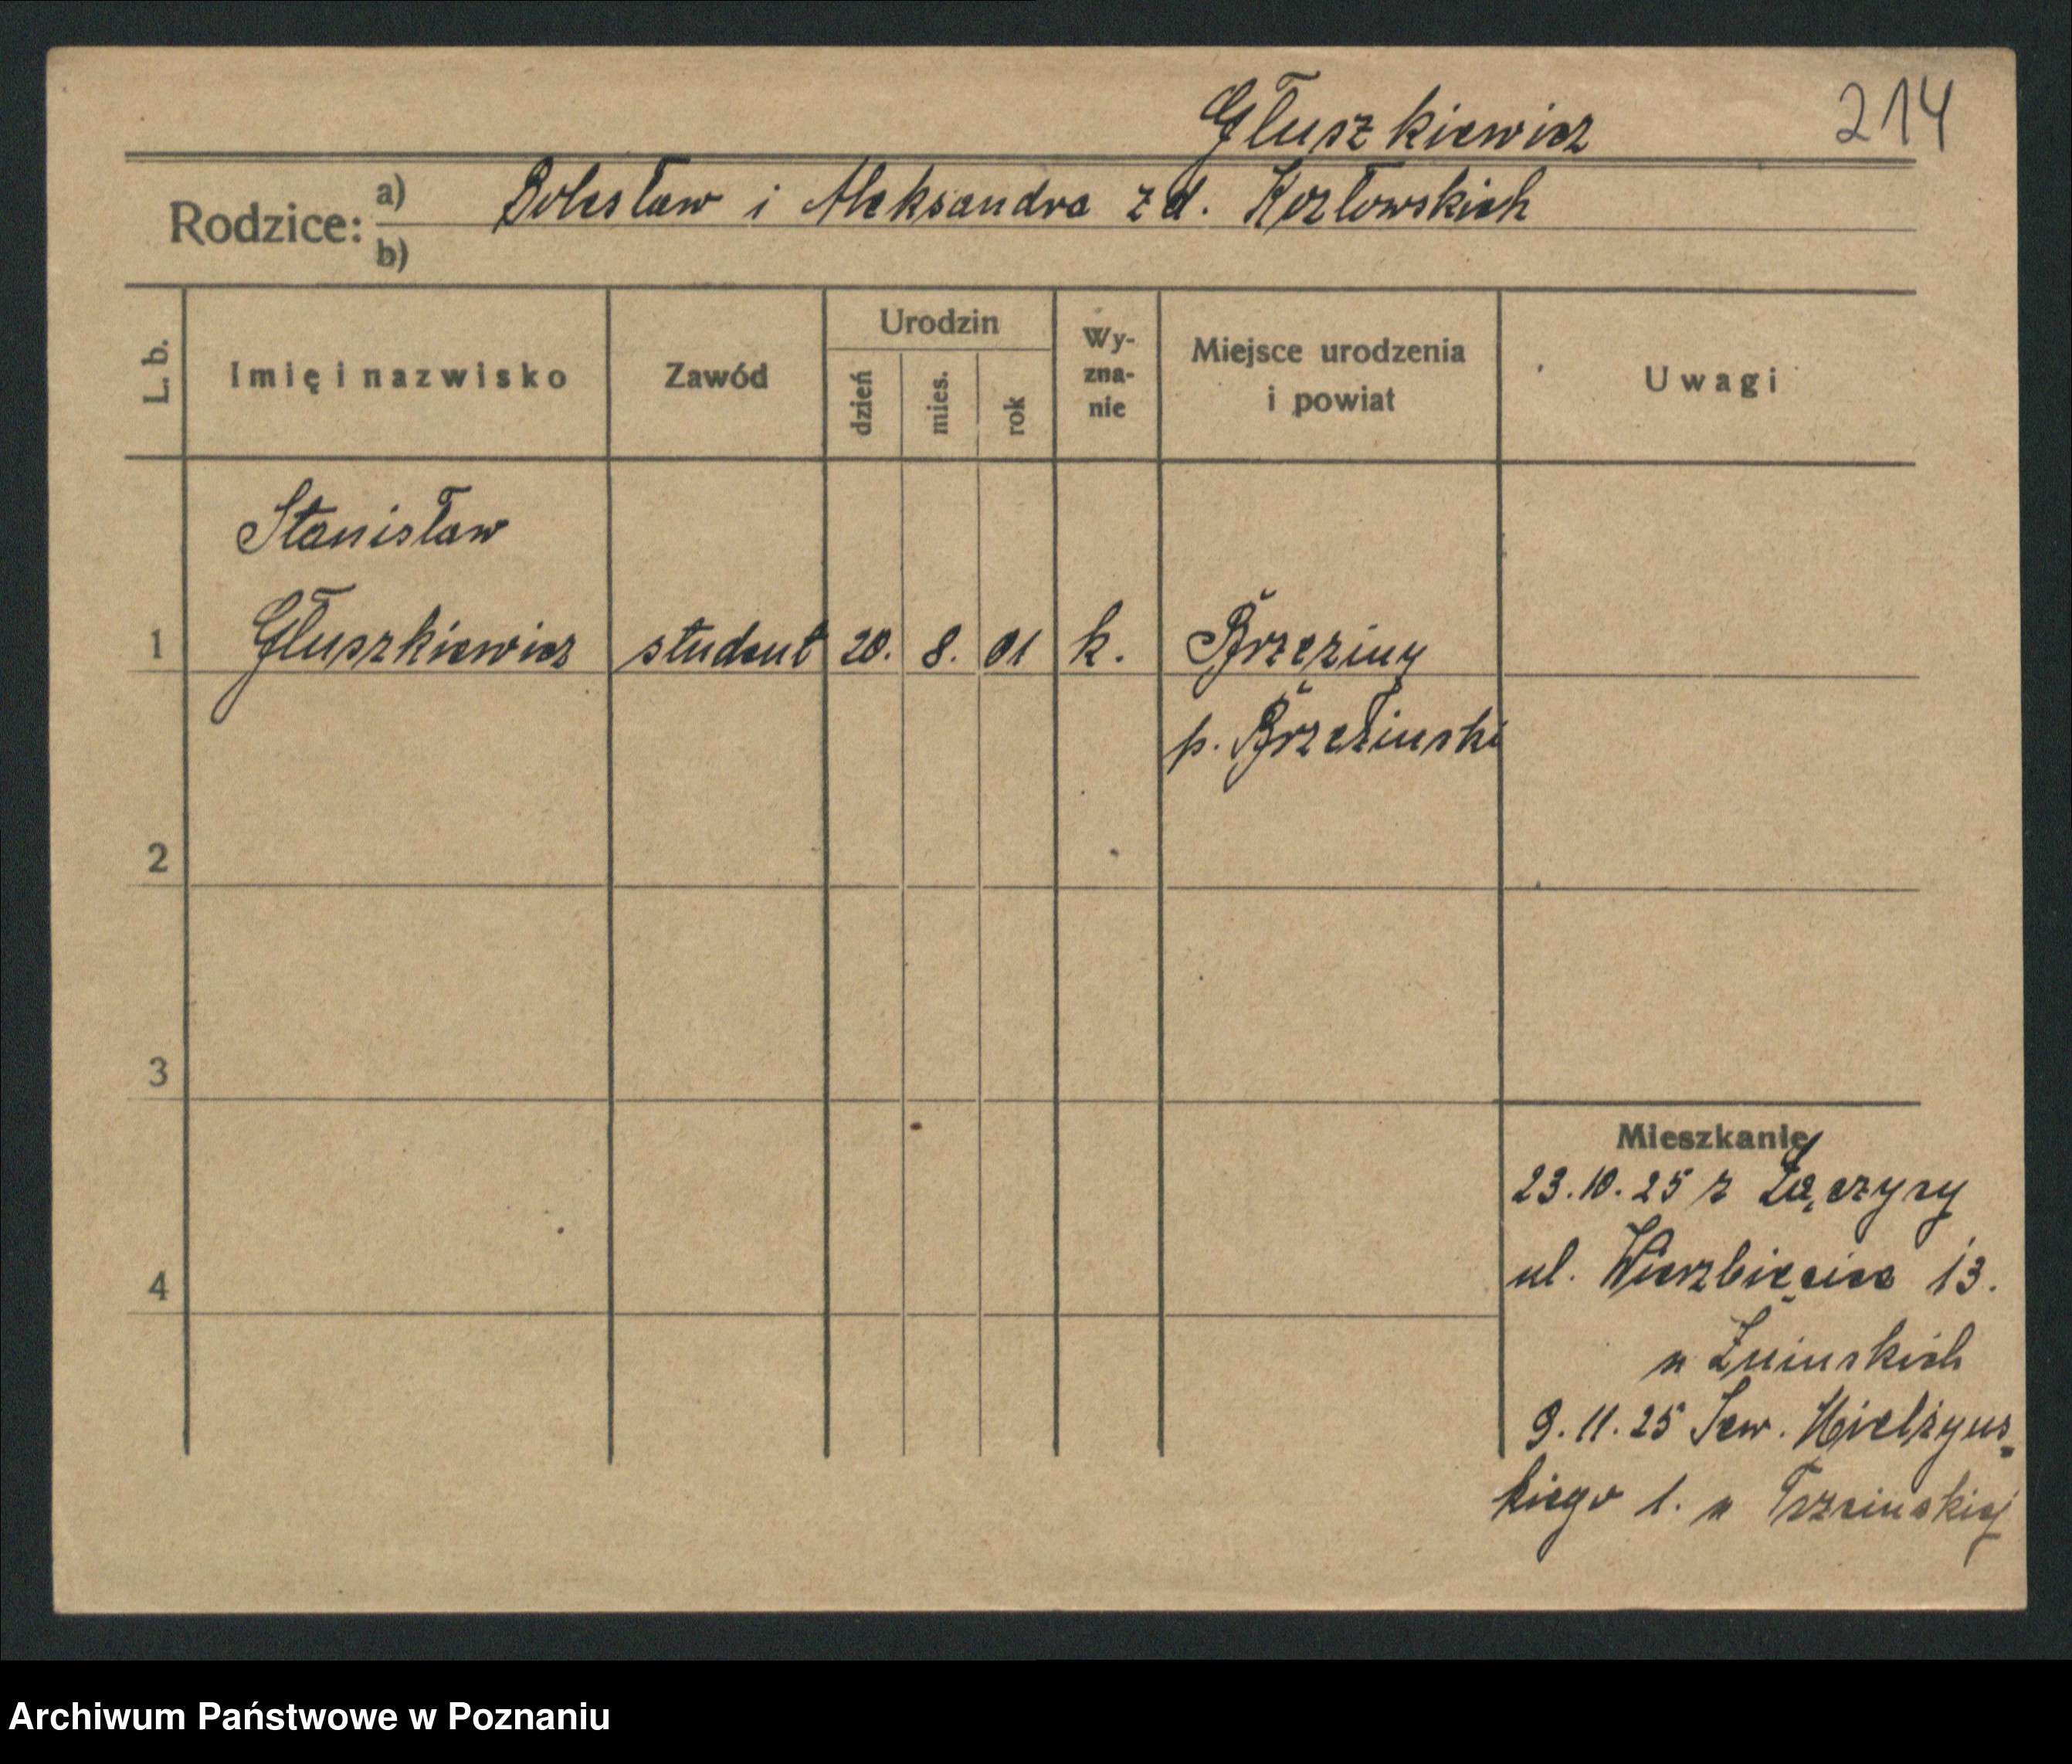 Głuszkiewicz
214
Rodzice: a) Bolesław i Aleksandra z d. Kozłowskich
b)
L. b.
Imię i nazwisko
Zawód
Urodzin
dzień
mies.
rok
Wy-
zna-
nie
Miejsce urodzenia
i powiat
Uwagi
Stanisław
1 Głuszkiewicz student 20. 8. 01 k. Brzeziny
p. Brzeziński
2
3
4
Mieszkanie
23.10.25 z
ul. Wierzbięcice 13.
u Żnińskich
9.11.25 Sew. Mielżyńs-
kiego 1. u Trzcińskiej
Archiwum Państwowe w Poznaniu